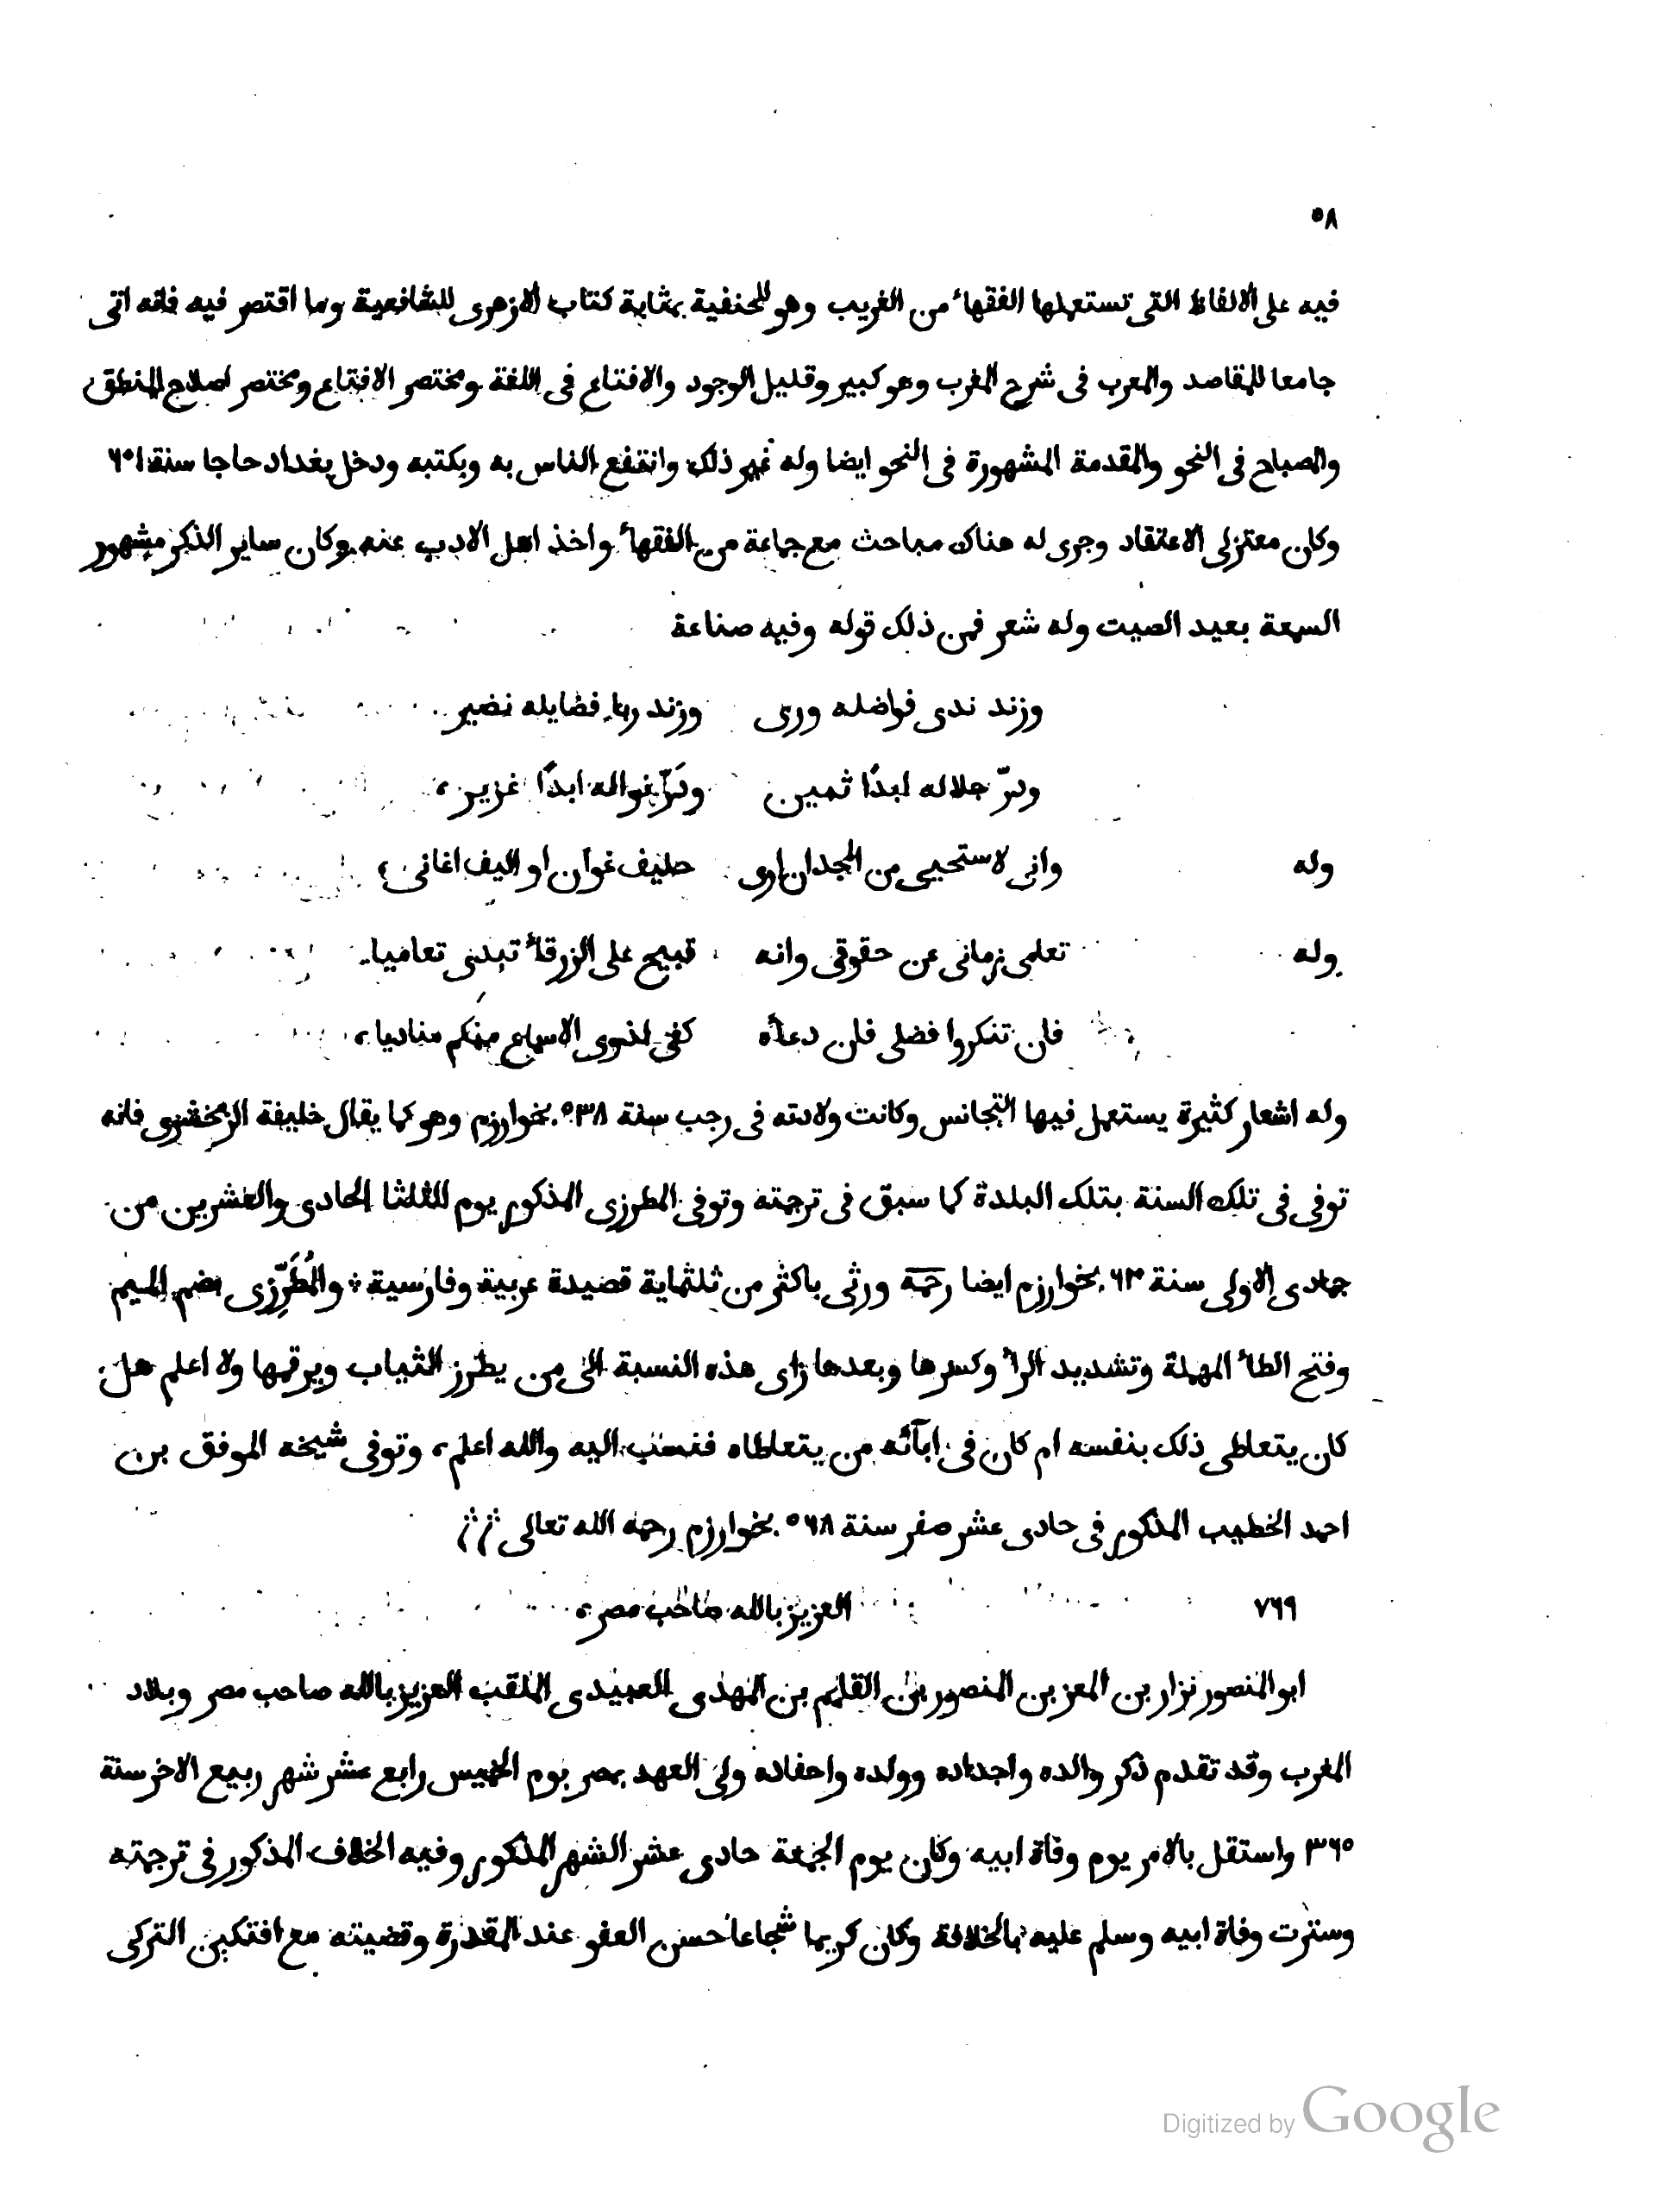 ٥٨
فيه على الالفاظ التى تستعملها الفقهاء من الغريب وهو للحنفية بمثابة كتاب الازهرى للشافعية وما اقتصر فيه فانه اتى
جامعا للمقاصد والمعرب فى شرح المغرب وهو كبير وقليل الوجود والاقناع فى اللغة ومختصر الاقناع ومختصر اصلاح المنطق
والمصباح فى النحو والمقدمة المشهورة فى النحو ايضا وله غير ذلك وانتفع الناس به وبكتبه ودخل بغداد حاجا سنة ٦٠١
وكان معتزلى الاعتقاد وجرى له هناك مباحث مع جماعة من الفقهاء واخذ اهل الادب عنه وكان ساير الذكر مشهور
السمعة بعيد الصيت وله شعر فمن ذلك قوله وفيه صناعة
وزند ندى فواضله ورى وزند ربا فضايله نضير
ودرّ جلاله ابدًا ثمين ودَرّ نواله ابدًا غزير،
وله وانى لاستحيى من المجد ان ارى حليف غوان او اليف اغانى،
وله تعامى زمانى عن حقوقى وانه قبيح على الزرقاء تبدى تعاميا
فان تنكروا فضلى فان دعاءه كفى لذوى الاسماع منكم مناديا،
وله اشعار كثيرة يستعمل فيها التجانس وكانت ولادته فى رجب سنة ٥٣٨ بخوارزم وهو كما يقال خليفة الزمخشرى فانه
توفى فى تلك السنة بتلك البلدة كما سبق فى ترجمته وتوفى المطرزى المذكور يوم الثلثا الحادى والعشرين من
جمادى الاولى سنة ٦١٠ بخوارزم ايضا رحمه ورثى باكثر من ثلثماية قصيدة عربية وفارسية ÷ والمُطَرِّزى بضم الميم
وفتح الطاء المهملة وتشديد الراء وكسرها وبعدها زاى هذه النسبة الى من يطرز الثياب ويرقمها ولا اعلم هل
كان يتعاطى ذلك بنفسه ام كان فى ابآئه من يتعاطاه فنسب اليه والله اعلم، وتوفى شيخه الموفق بن
احمد الخطيب المذكور فى حادى عشر صفر سنة ٥٦٨ بخوارزم رحمه الله تعالى
٧٦٩ العزيز بالله صاحب مصر،
ابو المنصور نزار بن المعز بن المنصور بن القايم بن المهدى العبيدى الملقب العزيز بالله صاحب مصر وبلاد
المغرب وقد تقدم ذكر والده واجداده وولده واحفاده ولى العهد بمصر يوم الخميس رابع عشر شهر ربيع الاخر سنة
٣٦٥ واستقل بالامر يوم وفاة ابيه وكان يوم الجمعة حادى عشر الشهر المذكور وفيه الخلاف المذكور فى ترجمته
وسترت وفاة ابيه وسلم عليه بالخلافة وكان كريما شجاعا حسن العفو عند المقدرة وقضيته مع افتكين التركى
Digitized by Google